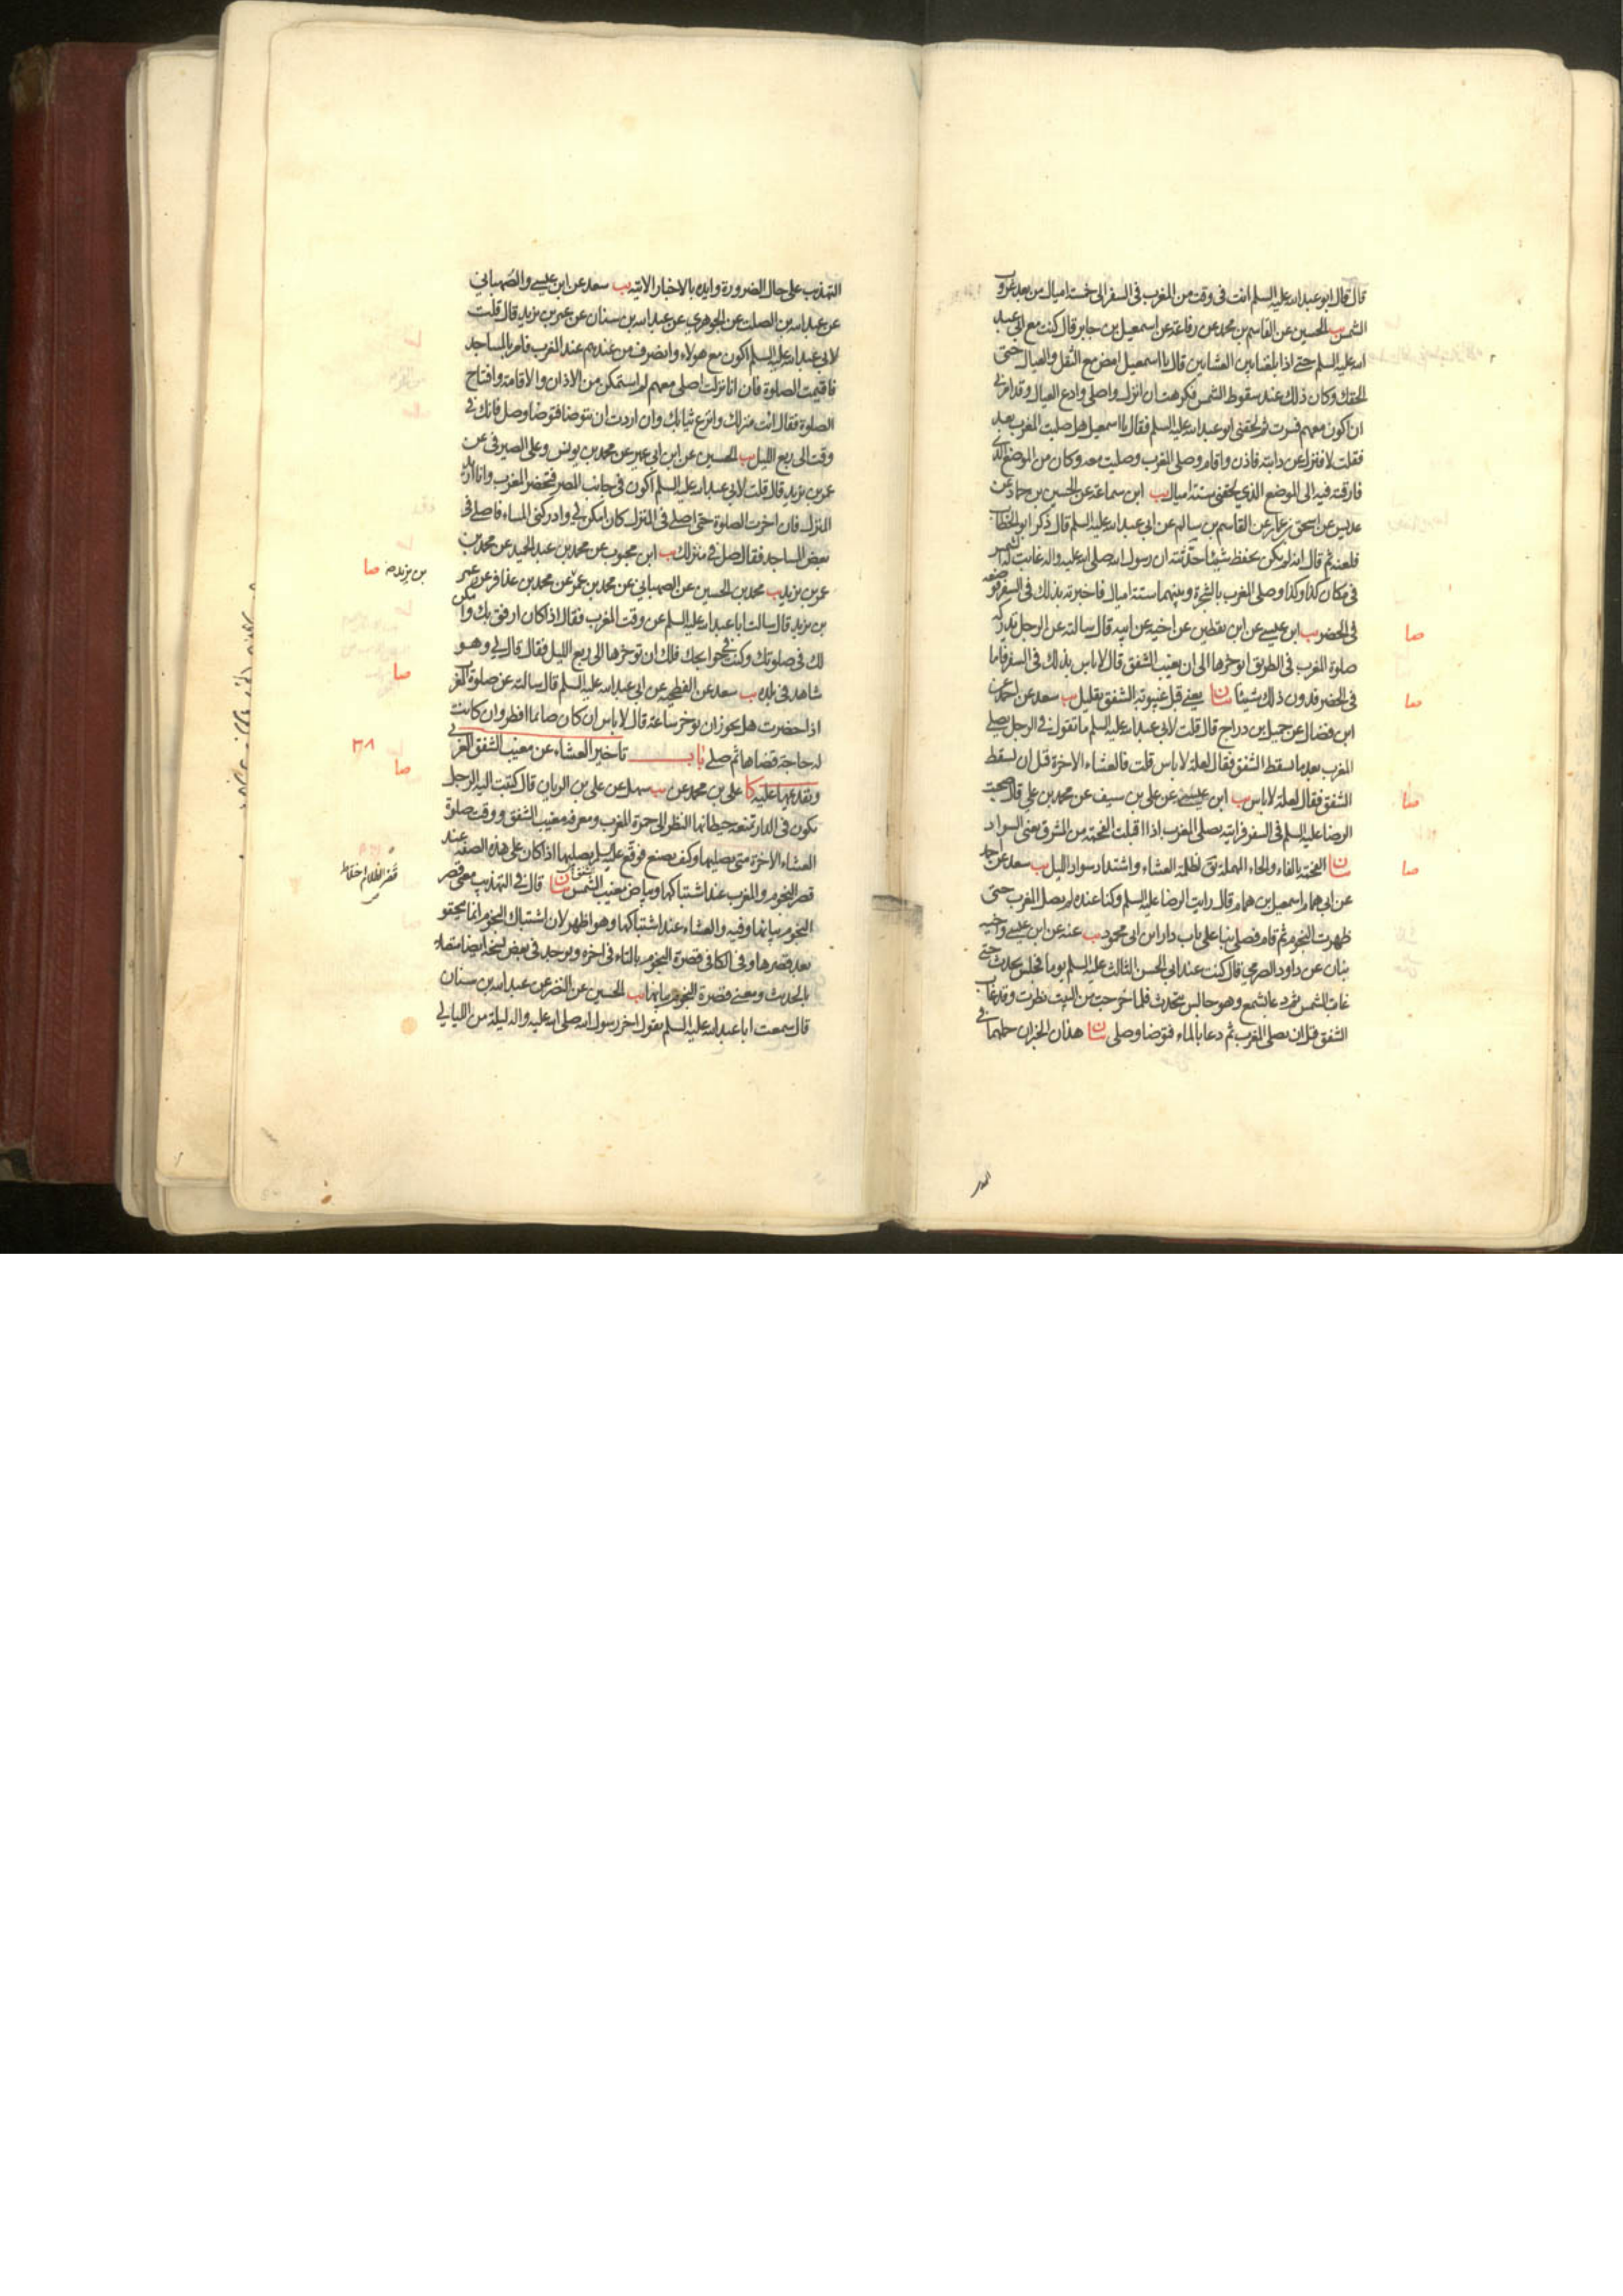 قال قال ابو عبد الله عليه السلم انت فى وقت من المغرب فى السفر الى خمسة اميال من بعد غروب
الشمس يب الحسين عن القاسم بن محمد عن رفاعة عن اسمعيل بن جابر قال كنت مع ابي عبد
الله عليه السلم حتى اذا بلغنا بين العشاءين قال يا اسمعيل امض مع الثقل والعيال حتى
الحقك وكان ذلك عند سقوط الشمس فكرهت ان انزل واصلى وادع العيال وقد امرنى
ان اكون معهم فسرت ثم لحقنى ابو عبد الله عليه السلم فقال يا اسمعيل هل صليت المغرب بعد
فقلت لا فنزل عن دابته فاذن واقام وصلى المغرب وصليت معه وكان من الموضع الذى
فارقته فيه الى الموضع الذي لحقنى ستة اميال يب ابن سماعة عن الحسين بن حماد عن
عديس عن اسحق بن عمار عن القاسم بن سالم عن ابى عبد الله عليه السلم قال ذكر ابو الخطاب
فلعنه ثم قال انه لم يكن يحفظ شيئا حدثته ان رسول الله صلى الله عليه واله غابت له الشمس
فى مكان كذا وكذا وصلى المغرب بالشجرة وبينهما ستة اميال فاخبرته بذلك فى السفر فوضعه
فى الحضر يب ابن عيسى عن ابن يقطين عن اخيه عن ابيه قال سالته عن الرجل تدركه
صلوة المغرب فى الطريق ايوخرها الى ان يغيب الشفق قال لا باس بذلك فى السفر فاما
فى الحضر فدون ذلك شيئا بيان يعنى قبل غيبوبة الشفق بقليل يب سعد عن احمد عن
ابن فضال عن جميل بن دراج قال قلت لابى عبد الله عليه السلم ما تقول فى الرجل يصلى
المغرب بعد ما يسقط الشفق فقال لعلة لا باس قلت فالعشاء الاخرة قبل ان يسقط
الشفق فقال لعلة لا باس يب ابن عيسى عن على بن سيف عن محمد بن على قال صحبت
الرضا عليه السلم فى السفر فرايته يصلى المغرب اذا اقبلت الفحمة من المشرق يعنى السواد
بيان الفحمة بالفاء والحاء المهملة يق لظلمة العشاء واشتداد سواد الليل يب سعد عن احمد
عن ابى همام اسمعيل بن همام قال رايت الرضا عليه السلم وكنا عنده لم يصل المغرب حتى
ظهرت النجوم ثم قام فصلى بنا على باب دار ابن ابى محمود يب عنه عن ابن عيسى واخيه
بنان عن داود الصرمى قال كنت عند ابى الحسن الثالث عليه السلم يوما فجلس يحدث حتى
غابت الشمس ثم دعا بشمع وهو جالس يتحدث فلما خرجت من البيت نظرت وقد غاب
الشفق قبل ان يصلى المغرب ثم دعا بالماء فتوضا وصلى بيان هذان الخبران حملهما فى
صا
صا
صا
صا
التهذيب على حال الضرورة وايده بالاخبار الاتية يب سعد عن ابن عيسى والصهبانى
عن عبد الله بن الصلت عن الجوهرى عن عبد الله بن سنان عن عمر بن يزيد قال قلت
لابى عبد الله عليه السلم اكون مع هولاء وانصرف من عندهم عند المغرب فامر بالمساجد
فاقيمت الصلوة فان انا نزلت اصلى معهم لم استمكن من الاذان والاقامة وافتتاح
الصلوة فقال ائت منزلك وانزع ثيابك وان اردت ان تتوضا فتوضا وصل فانك فى
وقت الى ربع الليل يب الحسين عن ابن ابى عمير عن محمد بن يونس وعلى الصيرفى عن
عمر بن يزيد قال قلت لابى عبد الله عليه السلم اكون فى جانب المصر فتحضر المغرب وانا اريد
المنزل فان اخرت الصلوة حتى اصلى فى المنزل كان امكن لى وادركنى المساء فاصلى فى
بعض المساجد فقال صل فى منزلك يب ابن محبوب عن محمد بن عبد الحميد عن محمد بن
عمر بن يزيد يب محمد بن الحسين عن الصهبانى عن محمد بن عمر عن محمد بن عذافر عن عمر
بن يزيد قال سالت ابا عبد الله عليه السلم عن وقت المغرب فقال اذا كان ارفق بك وامكن
لك فى صلوتك وكنت فى حوايجك فلك ان توخرها الى ربع الليل فقال قال لى وهو
شاهد فى بلده يب سعد عن الفطحية عن ابى عبد الله عليه السلم قال سالته عن صلوة المغرب
اذا حضرت هل يجوز ان توخر ساعة قال لا باس ان كان صائما افطر وان كانت
له حاجة قضاها ثم صلى باب تاخير العشاء عن مغيب الشفق الغربى
وتقديمها عليه كا على بن محمد عن يب سهل عن على بن الريان قال كتبت اليه الرجل
يكون فى الدار تمنعه حيطانها النظر الى حمرة المغرب ومعرفة مغيب الشفق ووقت صلوة
العشاء الاخرة متى يصليها وكيف يصنع فوقع عليه السلم يصليها اذا كان على هذه الصفة عند
قصر النجوم والمغرب عند اشتباكها وبياض مغيب الشمس بيان قال فى التهذيب معنى قصر
النجوم بيانها وفيه والعشاء عند اشتباكها وهو اظهر لان اشتباك النجوم انما يحقق
بعد قصرها وفى الكافى قصرة النجوم بالتاء فى اخره ويوجد فى بعض نسخه ايضا متصلا
بالحديث ومعنى قصرة النجوم بيانها يب الحسين عن النضر عن عبد الله بن سنان
قال سمعت ابا عبد الله عليه السلم يقول اخر رسول الله صلى الله عليه واله ليلة من الليالى
بن يزيد صا
صا
٣٨
صا
قصر الظلام اختلاط